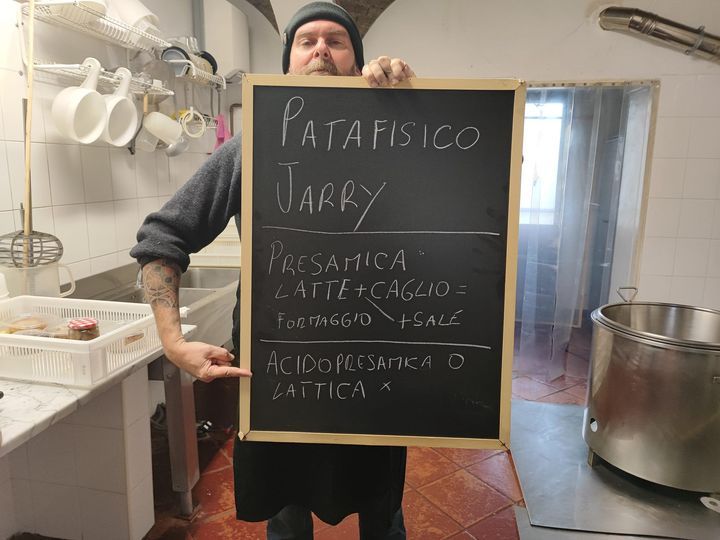 PATAFISICO
JARRY
PRESAMICA:
LATTE+CAGLIO=
FORMAGGIO +SALE
ACIDOPRESAMICA O
LATTICA x